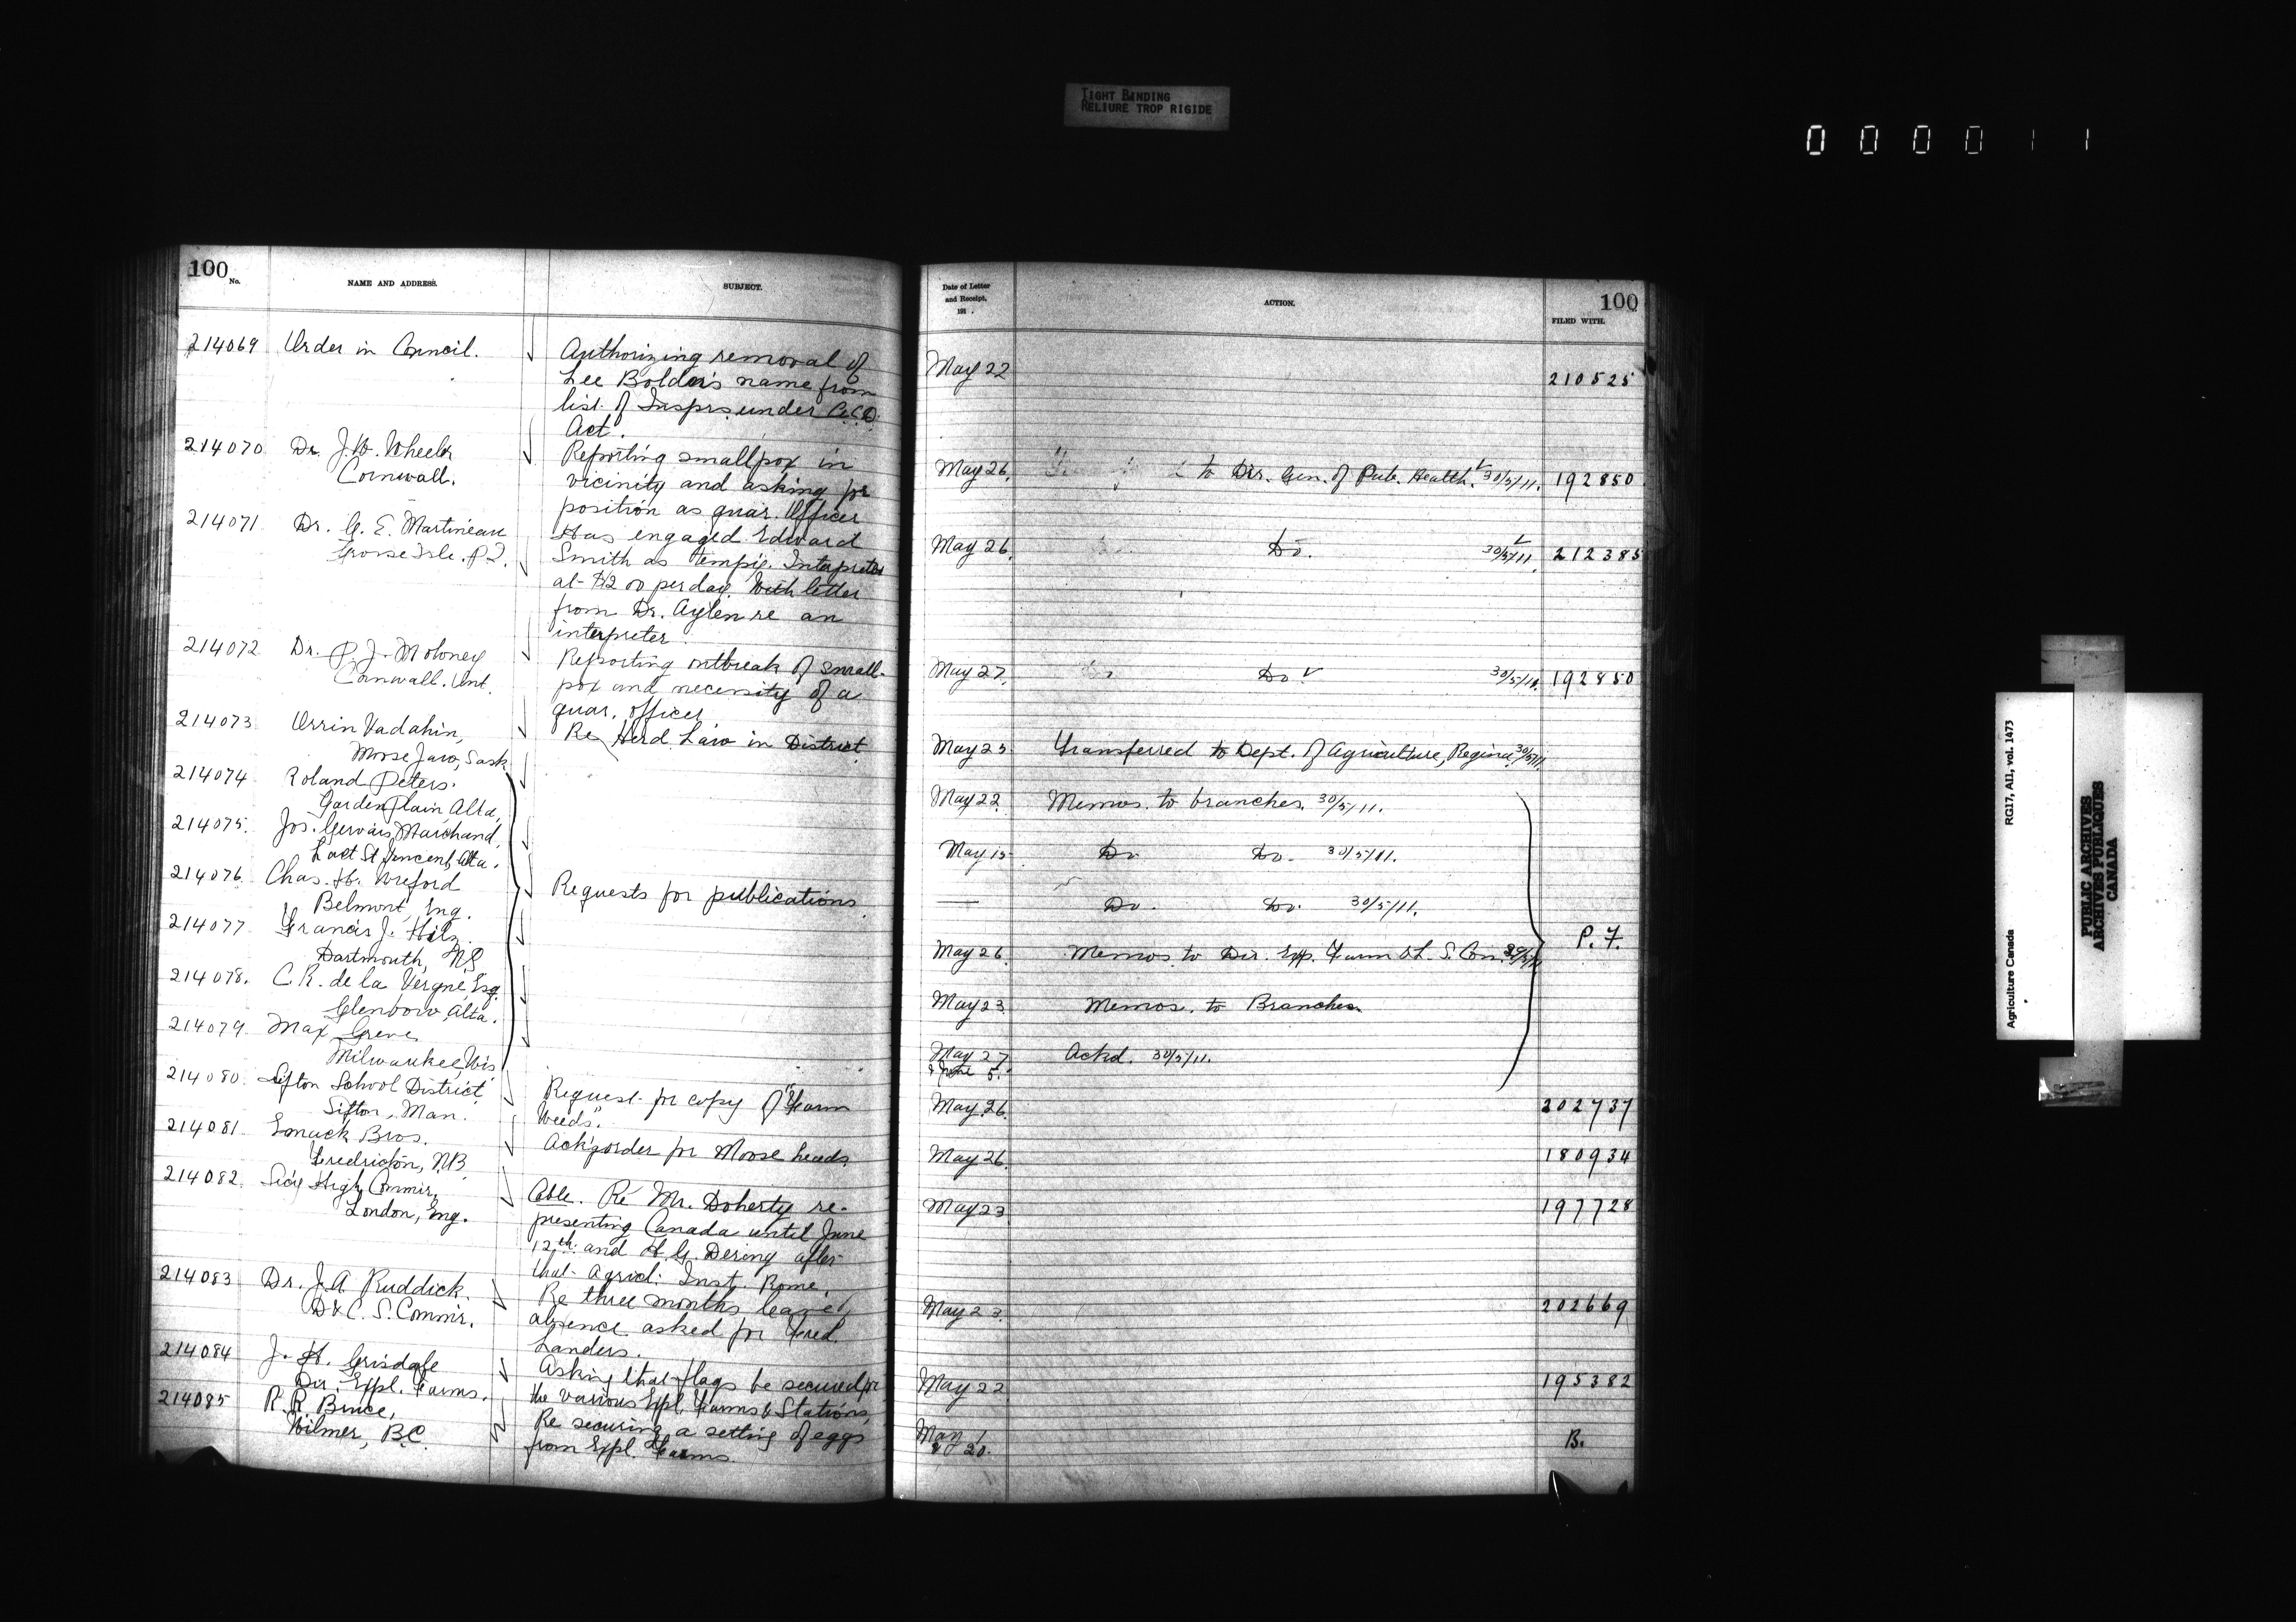 TIGHT BINDING
RELIURE TROP RIGIDE
000011
100
No.
NAME AND ADDRESS.
SUBJECT.
214069 Order in Council.
Authorizing removal of
Lee Bolder's name from
list of Insprs. under
Act.
214070 Dr. J.W. Wheeler
Cornwall.
Reporting smallpox in
vicinity and asking for
position as quar. Officer
214071 Dr. G. E. Martineau
Grosse Isle. P.Q.
Has engaged Edward
Smith as Tempy. Interpreter
at $2.00 per day. With letter
from Dr. Aylen re an
interpreter.
214072 Dr. P. J. Moloney
Cornwall. Ont.
Reporting outbreak of small-
pox and necessity of a
quar. officer
214073 Orrin Vadahin,
Moose Jaw, Sask
Re Herd Law in District
214074 Roland Peters.
Garden Plain, Alta,
214075. Jos. Gervais Marchand,
St Vincent, Alta.
214076 Chas. H. Wreford
Belmont, Eng.
214077 Francis J. Hilz.
Dartmouth, NS
214078. C.R. de la Vergne, Esq.
Glenbow, Alta.
214079 Max Greve
Milwaukee, Wis
Requests for publications.
214080 Sifton School District
Sifton, Man.
Request for copy of "Farm
Weeds".
214081 Emack Bros.
Fredricton, N.B.
Ackg order for Moose heads.
214082. Sec'y High Commir,
London, Eng.
Cable. Re Mr. Doherty re-
presenting Canada until June
12th and H. G. Dering after
that Agricl. Inst. Rome.
214083 Dr. J.A Ruddick.
D & C. S. Commir.
Re three months leave
absence asked for Fred.
Landers.
214084 J. H. Grisdale
Dir. Expl. Farms.
Asking that flags be secured for
the various Expl. Farms & Stations,
214085 R. R. Bruce,
Wilmer, B.C.
Re securing a setting of eggs
from Expl. Farms.
Date of Letter
and Receipt,
191 .
ACTION.
100
FILED WITH.
May 22 210525
May 26. to Dir. Gen. of Pub. Health. 30/5/11. 192850
May 26. Do. 30/5/11. 212385
May 27. Do Do 30/5/11. 192850
May 25 Transferred to Dept. of Agriculture, Regina. 30/5/11.
May 22 Memos. to branches. 30/5/11.
May 15 Do Do. 30/5/11.
— Do. Do. 30/5/11.
May 26 Memos. to Dir. Exp. Farm & L. S. Com.
P. F.
May 23 Memos. to Branches.
May 27 Ackd. 30/5/11.
& June 5.
May 26. 202737
May 26. 180934
May 23 197728
May 23. 202669
May 22 195382
May 1
& 20. B.
Agriculture Canada RG17, AII, vol. 1473
PUBLIC ARCHIVES
ARCHIVES PUBLIQUES
CANADA